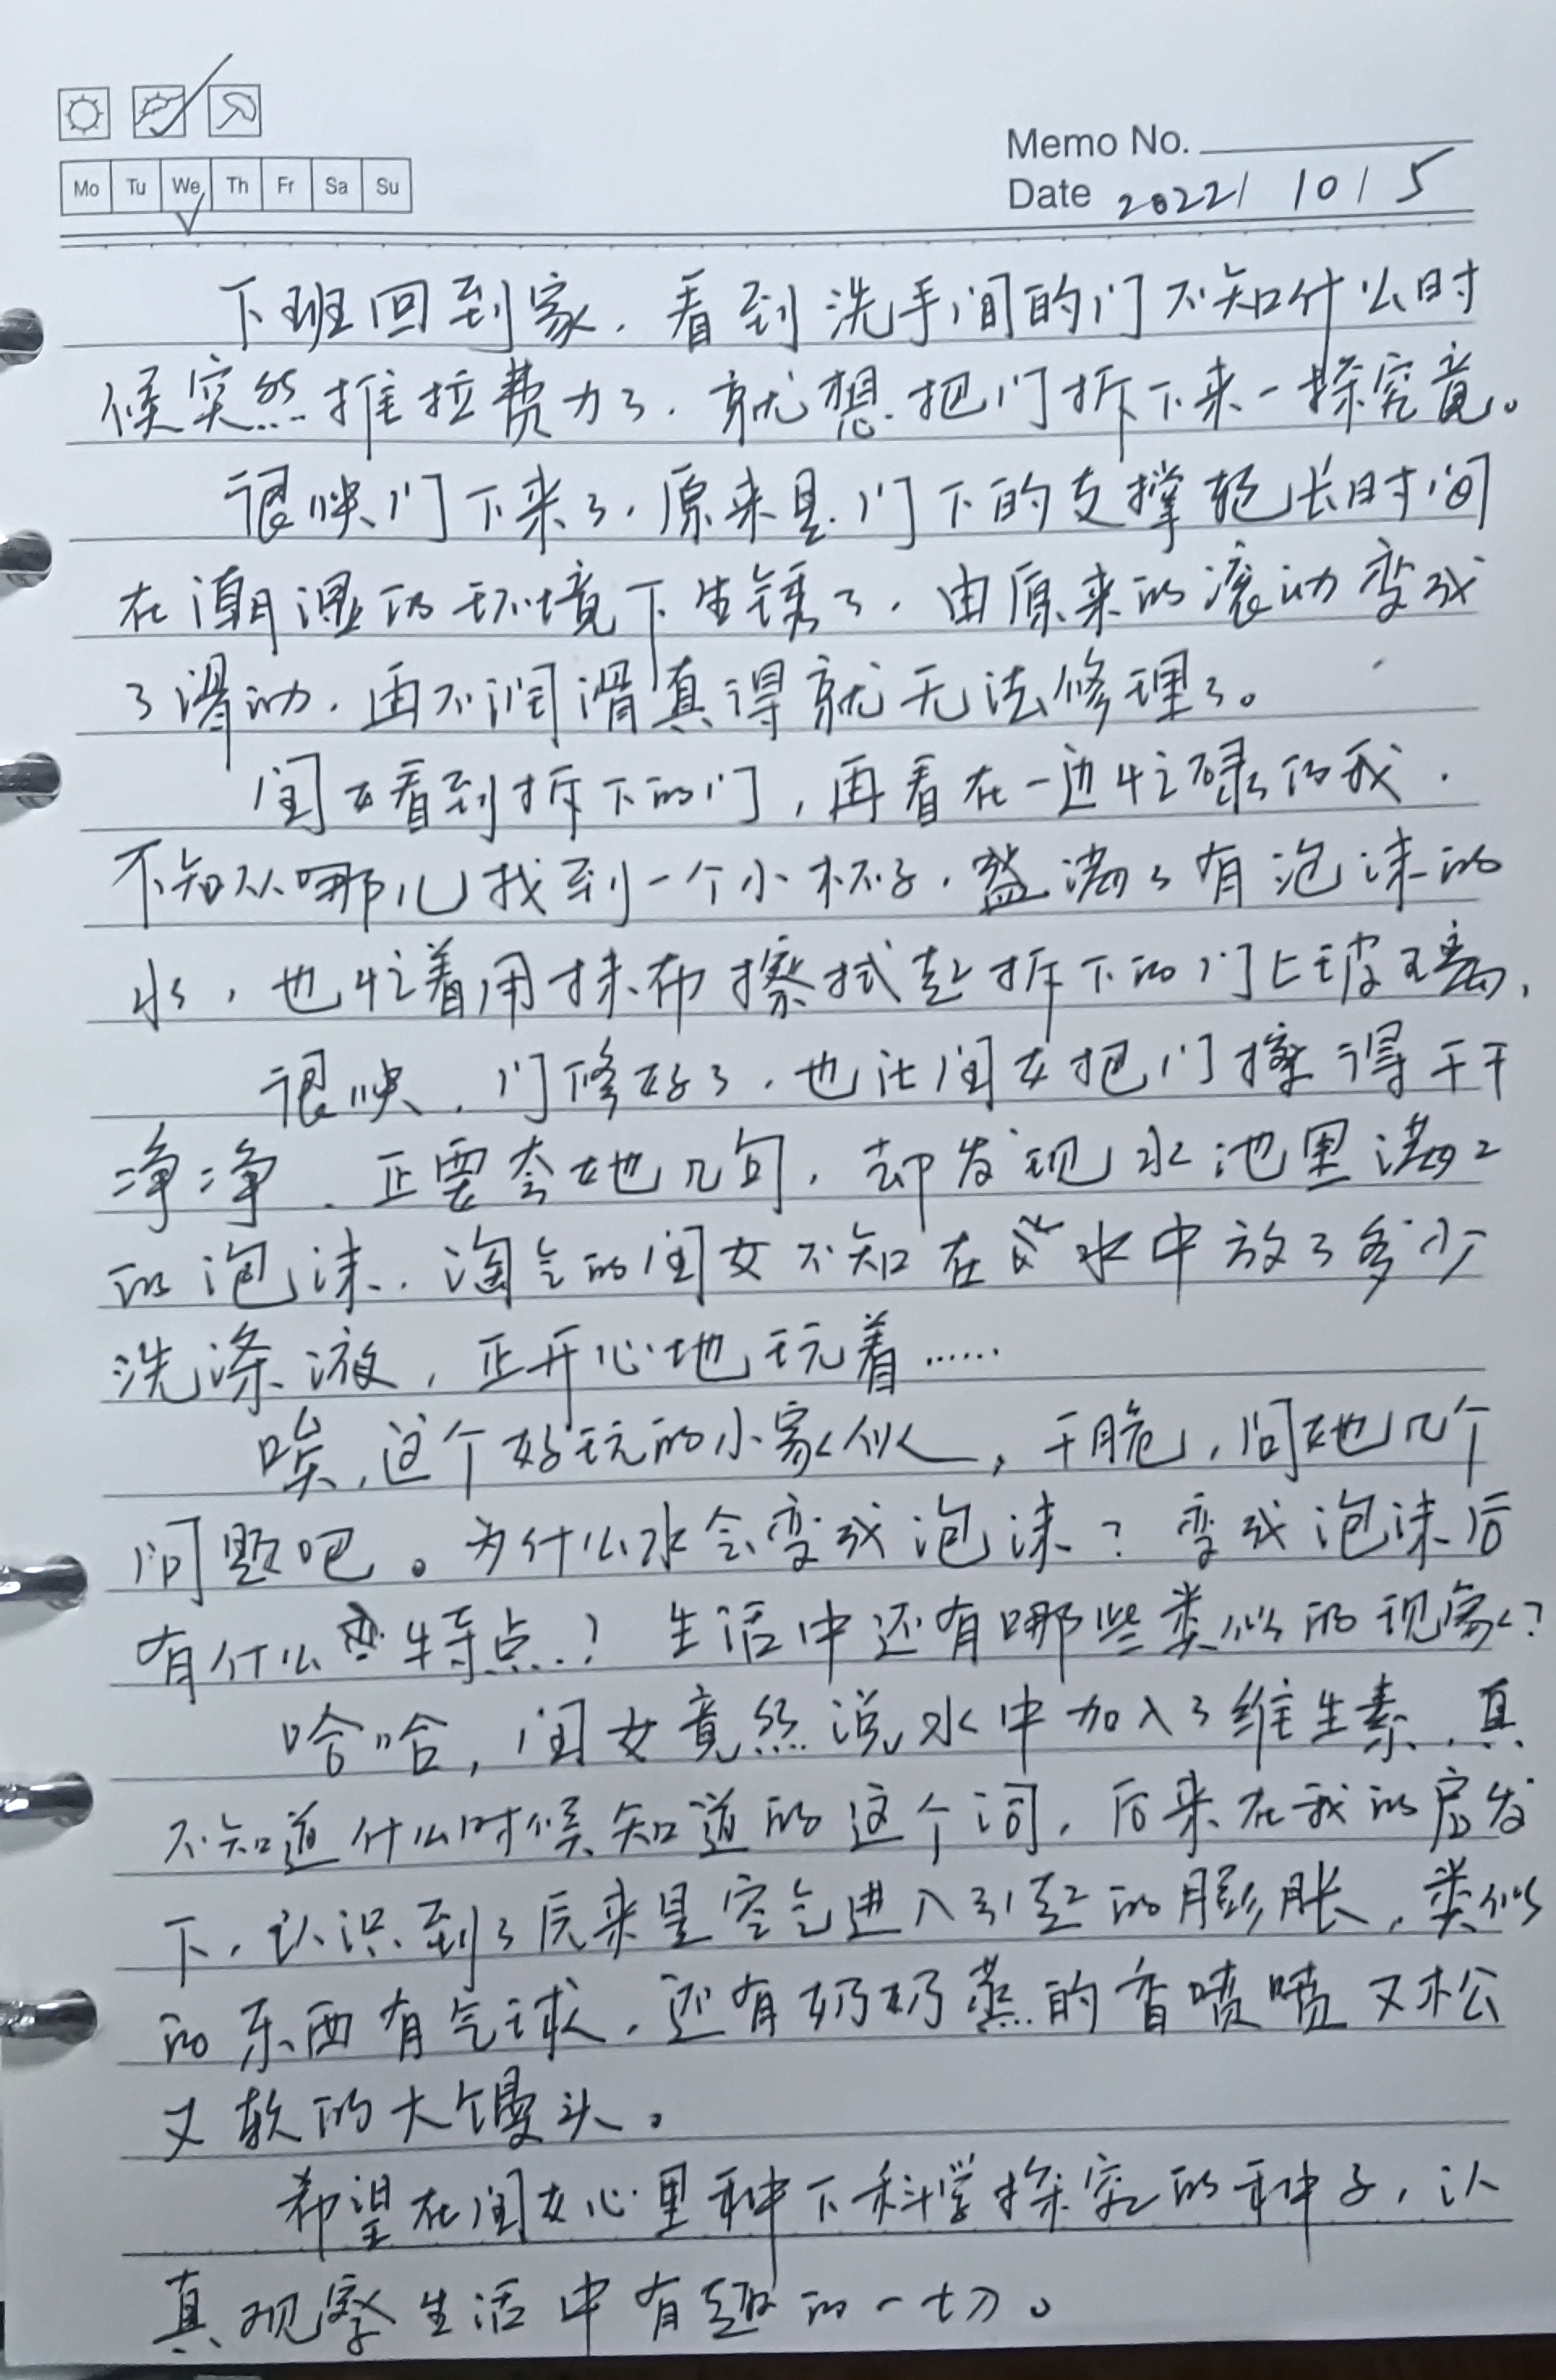 Memo No.
Mo Tu We Th Fr Sa Su
Date 2022 / 10 / 5
下班回到家，看到洗手间的门不知什么时
候突然推拉费力了，就想把门拆下来一探究竟。
很快门下来了，原来是门下的支撑轮长时间
在潮湿的环境下生锈了，由原来的滚动变成
了滑动，再不润滑真得就无法修理了。
闺女看到拆下的门，再看在一边忙碌的我，
不知从哪儿找到一个小杯子，盛满了有泡沫的
水，也忙着用抹布擦拭起拆下的门上玻璃，
很快，门修好了，也让闺女把门擦得干干
净净，正要夸她几句，却发现水池里满满
的泡沫，淘气的闺女不知在水中放了多少
洗涤液，正开心地玩着……
唉，这个好玩的小家伙，干脆，问她几个
问题吧。为什么水会变成泡沫？变成泡沫后
有什么特点？生活中还有哪些类似的现象？
哈哈，闺女竟然说水中加入了维生素，真
不知道什么时候知道的这个词，后来在我的启发
下，认识到了原来是空气进入引起的膨胀，类似
的东西有气球，还有奶奶蒸的香喷喷又松
又软的大馒头。
希望在闺女心里种下科学探究的种子，认
真观察生活中有趣的一切。